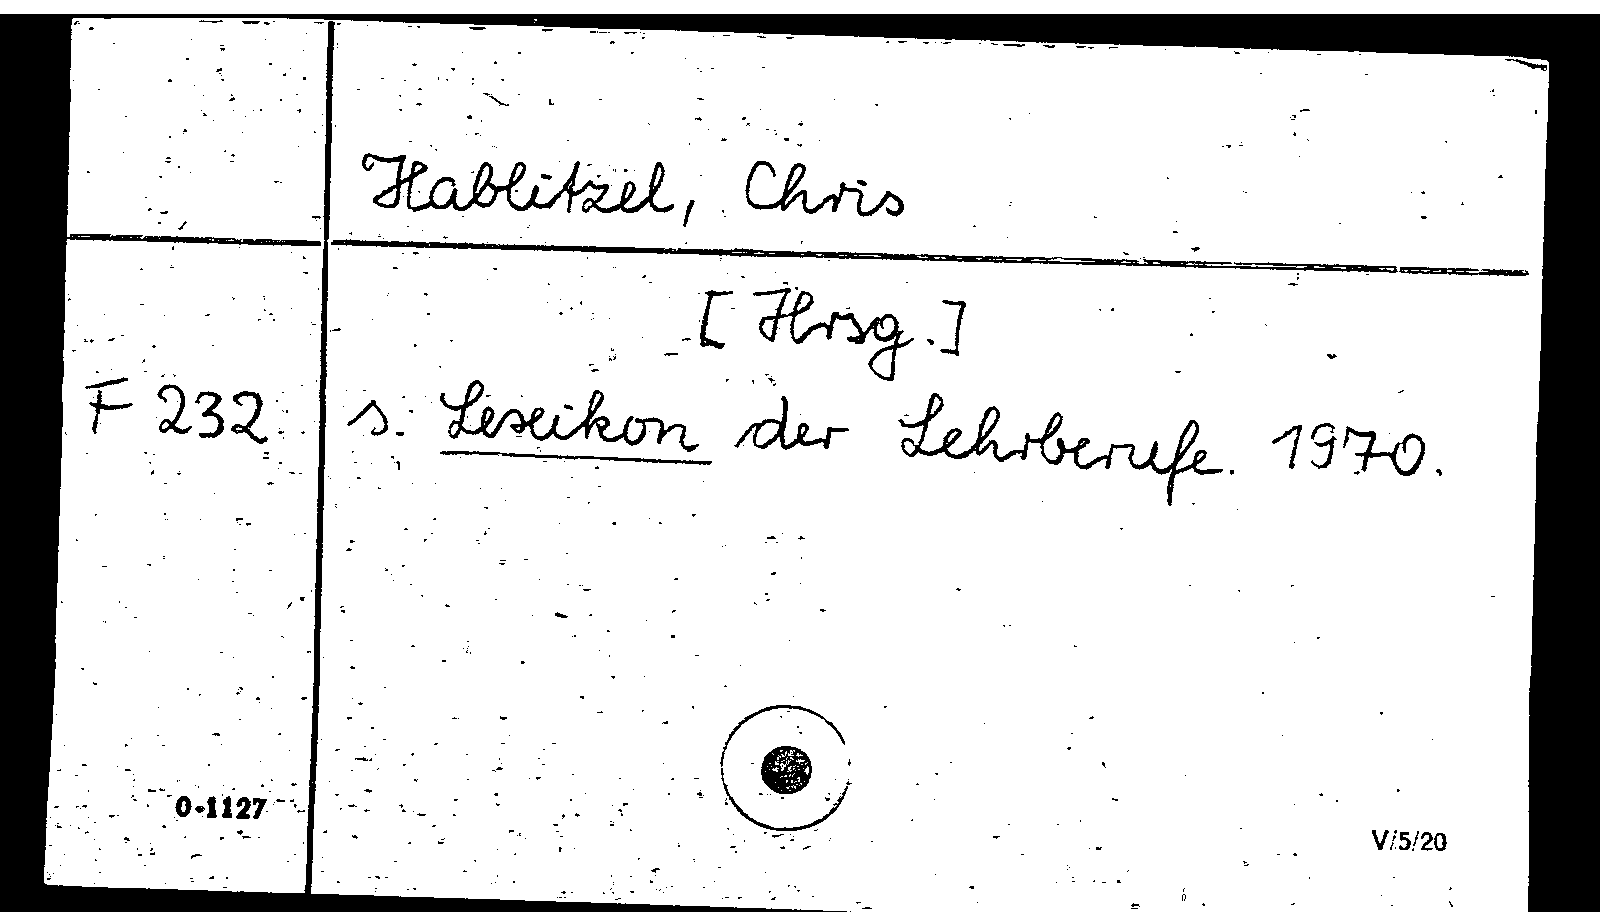 Hablitzel, Chris
[Hrsg.]
F 232 s. Lexikon der Lehrberufe. 1970.
0-1127
V/5/20